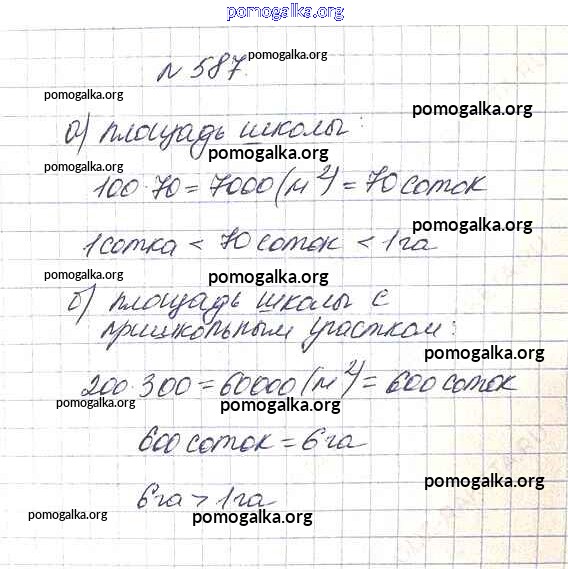 pomogalka.org
pomogalka.org
№ 587.
pomogalka.org
pomogalka.org
а) площадь школы:
pomogalka.org
pomogalka.org
100·70=7000(м²)=70 соток
pomogalka.org
1 сотка < 70 соток < 1 га
pomogalka.org
pomogalka.org
б) площадь школы с
пришкольным участком:
pomogalka.org
200·300=60000(м²)=600 соток
pomogalka.org
pomogalka.org
600 соток = 6 га
pomogalka.org
6 га > 1 га
pomogalka.org
pomogalka.org